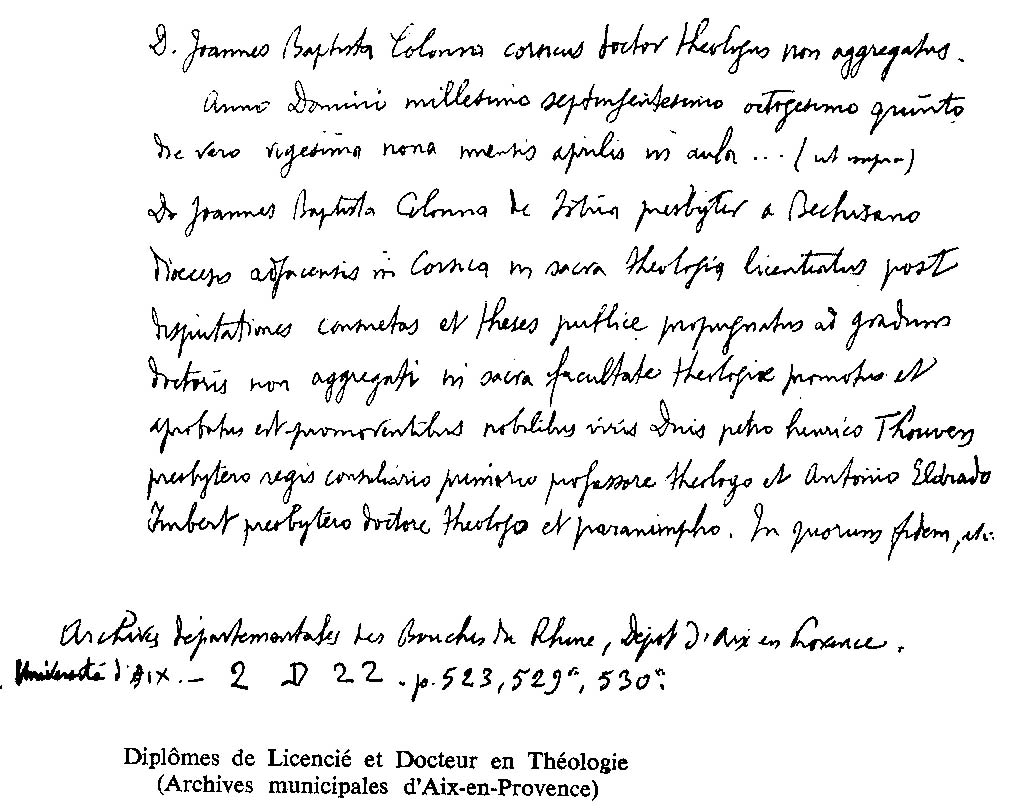 D. Joannes Baptista Colonna corsicus doctor theologus non aggregatus.
Anno Domini millesimo septingentesimo octogesimo quinto
die vero vigesima nona mensis aprilis in aula ... (ut supra)
Ds Joannes Baptista Colonna de Istria presbyter a Bechisano
diocesis adjacensis in Corsica in sacra theologia licentiatus post
disputationes consuetas et theses publice propugnatas ad gradum
doctoris non aggregati in sacra facultate theologiæ promotus et
aprobatus est promoventibus nobilibus viris Dnis petro henrico Thouven
presbytero regis consiliario primario professore theologo et Antonio Eldrado
Imbert presbytero doctore theologo et paranimpho. In quorum fidem, etc.
Archives départementales des Bouches du Rhône, Dépôt d'Aix en Provence.
Université d'Aix. - 2 D 22. p. 523, 529, 530.
Diplômes de Licencié et Docteur en Théologie
(Archives municipales d'Aix-en-Provence)